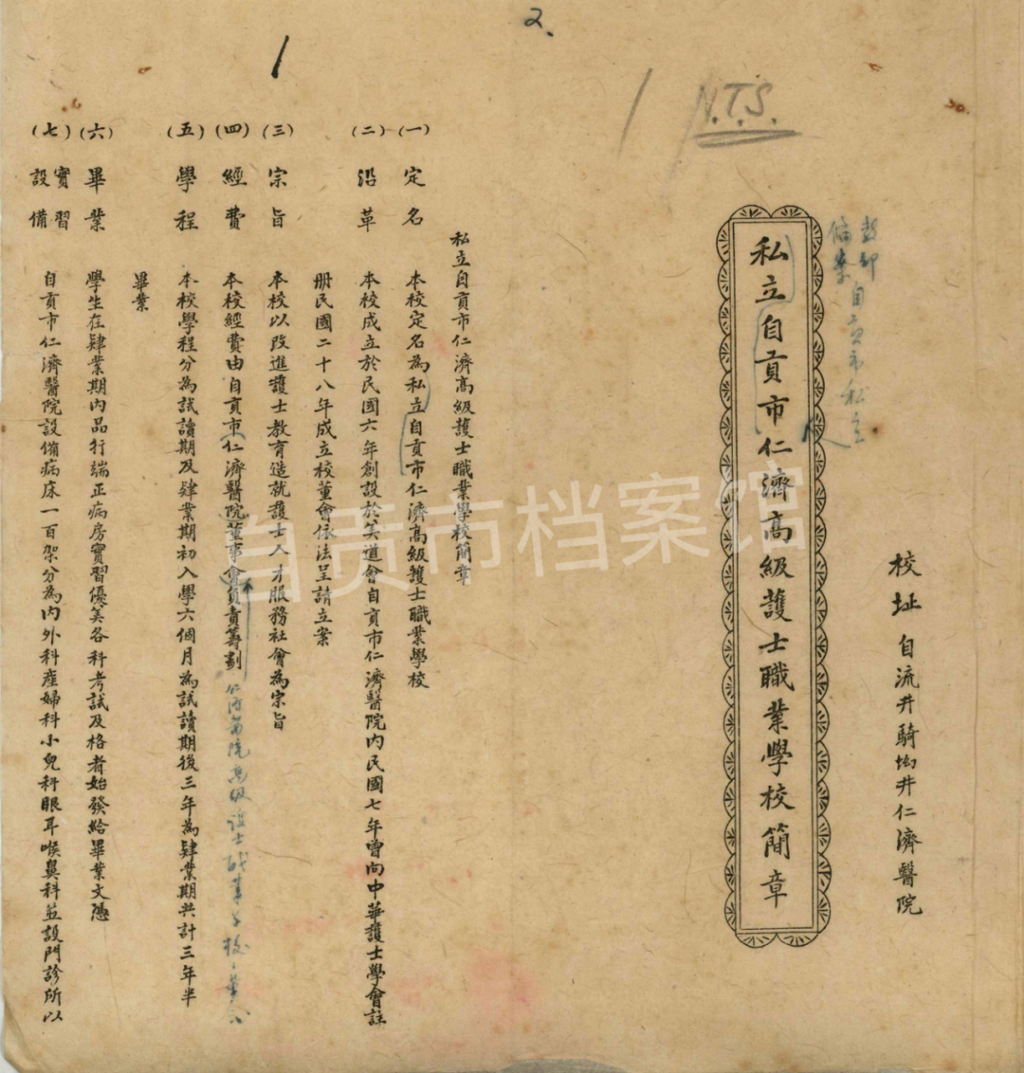 2.
1
N.T.S.
校址 自流井騎坳井仁濟醫院
自貢市私立
備案
私立自貢市仁濟高級護士職業學校簡章
私立自貢市仁濟高級護士職業學校簡章
(一) 定名 本校定名為私立自貢市仁濟高級護士職業學校
(二) 沿革 本校成立於民國六年創設於英道會自貢市仁濟醫院內民國七年曾向中華護士學會註
册民國二十八年成立校董會依法呈請立案
(三) 宗旨 本校以改進護士教育造就護士人才服務社會為宗旨
(四) 經費 本校經費由自貢市仁濟醫院董事會負責籌劃
仁濟醫院高級護士職業學校董
(五) 學程 本校學程分為試讀期及肄業期初入學六個月為試讀期後三年為肄業期共計三年半
畢業
(六) 畢業 學生在肄業期內品行端正病房實習優美各科考試及格者始發給畢業文憑
(七) 實習設備 自貢市仁濟醫院設備病床一百架分為內外科產婦科小兒科眼耳喉鼻科並設門診所以
自贡市档案馆